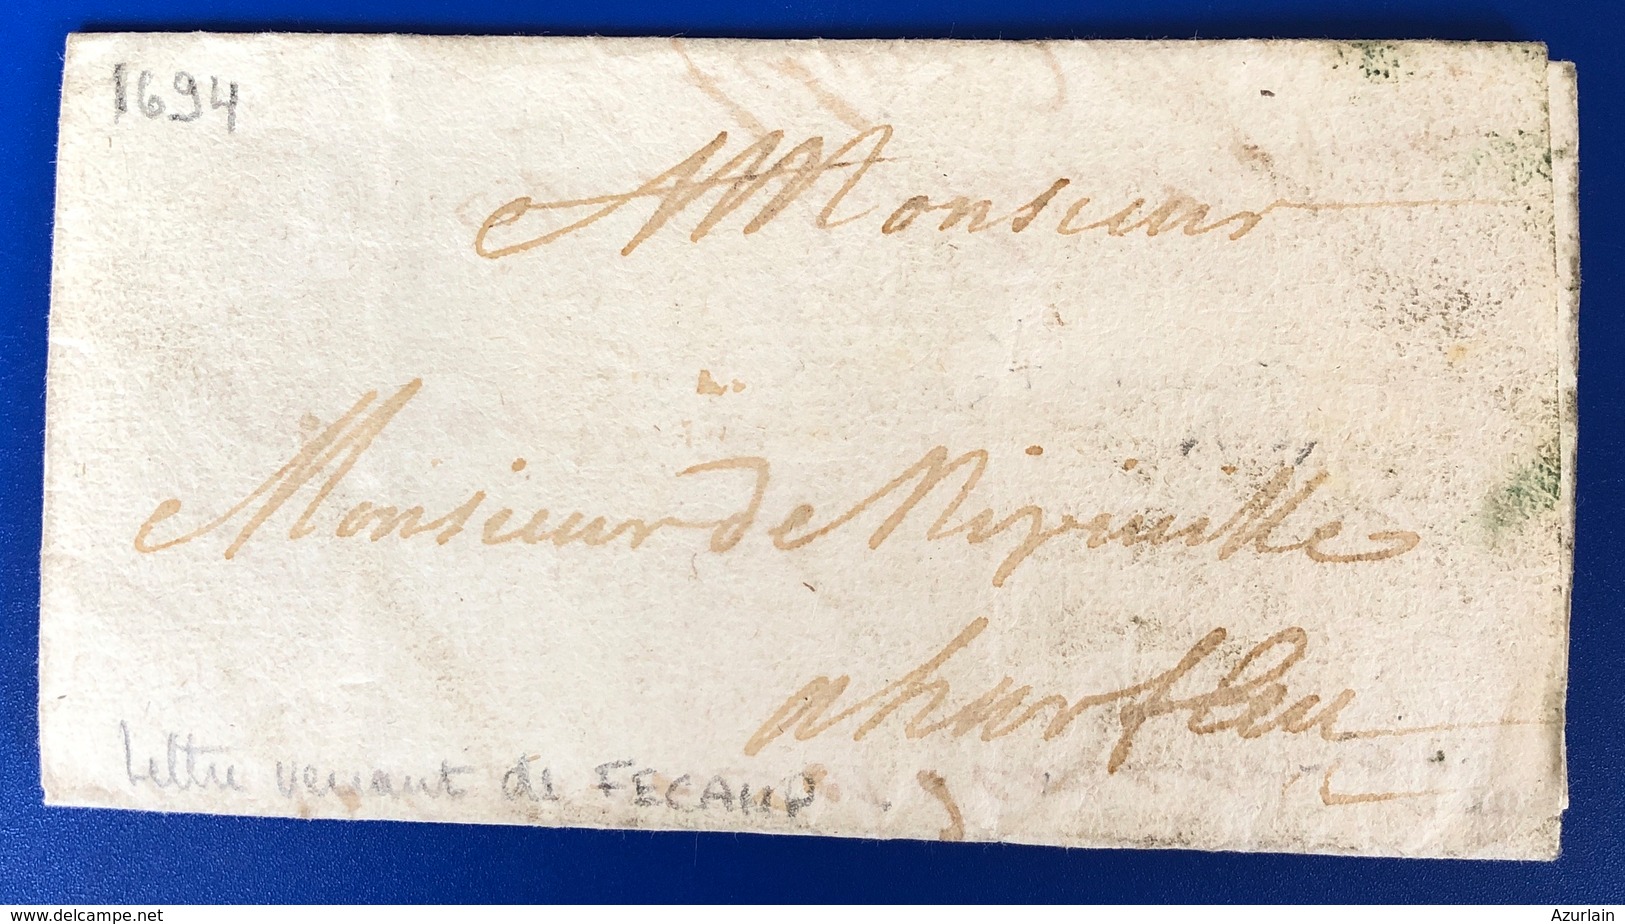 1694
Monsieur
Monsieur de
a harfleu
Lettre venant de FECAMP
www.delcampe.net
Azurlain